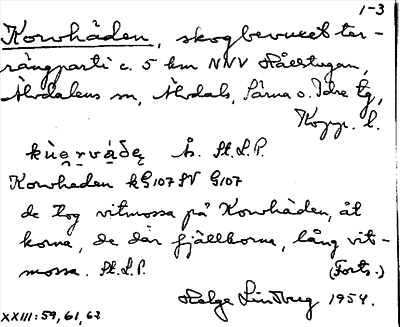 1-3
Korvhåden, skogbevuxet ter-
rängparti c. 5 km NNV Råelstugan,
Älvdalens sn, Älvdals, Särna o. Idre tg,
Kopp. l.
Å. St.L.P.
Korvhaden kG107SV G107
de tog vitmossa på Korvhåden, åt
korna, de där fjällkorna, lång vit-
mossa. St.L.P. (Forts.)
Helge Lindberg 1954.
XXIII:59,61,62